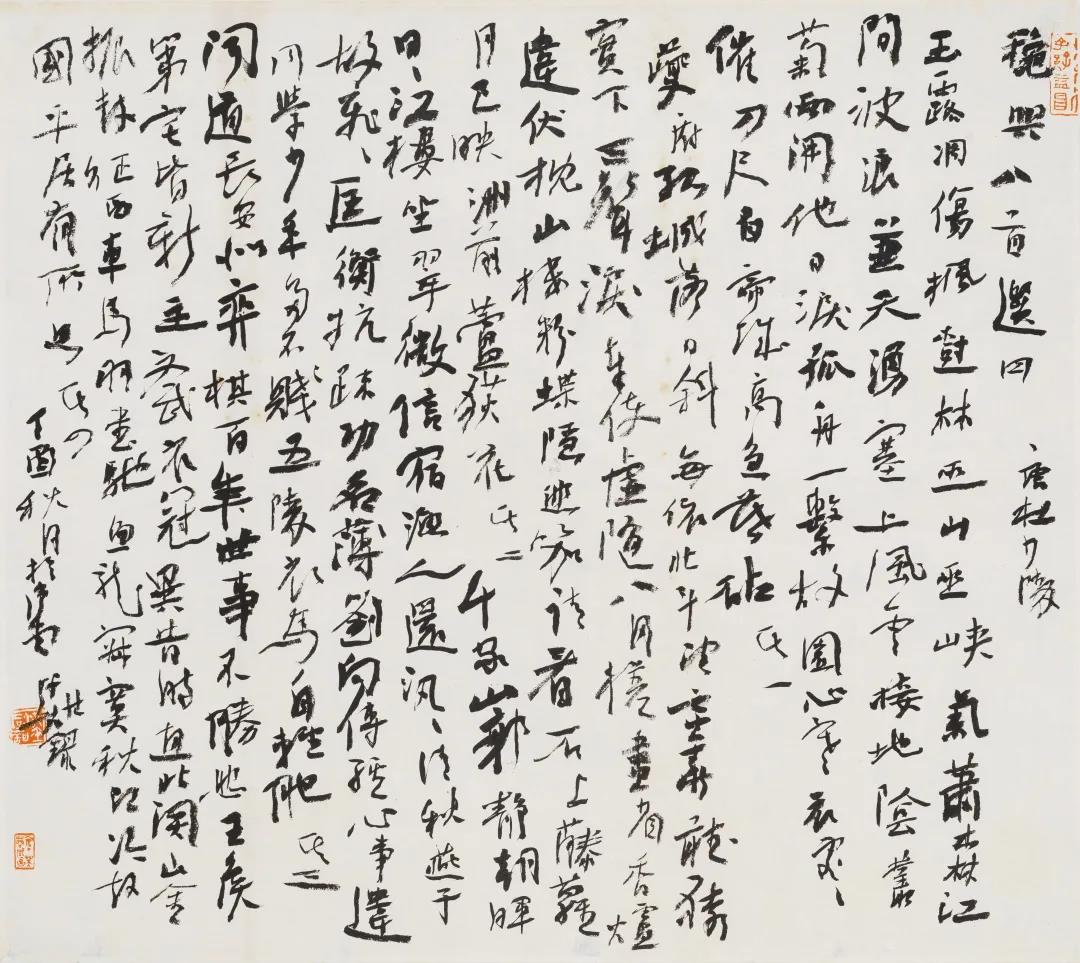 龝興八首選四 唐杜少陵
玉露凋傷楓樹林巫山巫峽氣蕭森江
間波浪兼天湧塞上風雲接地陰叢
菊兩開他日淚孤舟一繫故園心寒衣處〻
催刀尺白帝城高急暮砧 其一
夔府孤城落日斜每依北斗望京華聽猿
實下三聲淚奉使虛隨八月槎畫省香爐
違伏枕山樓粉堞隱悲笳請看石上藤蘿
月已映洲前蘆荻花 其二 千家山郭靜朝暉
日〻江樓坐翠微信宿漁人還汎〻清秋燕子
故飛〻匡衡抗疏功名薄劉向傳經心事違
同學少年多不賤五陵衣馬自輕肥 其三
聞道長安似弈棋百年世事不勝悲王侯
第宅皆新主文武衣冠異昔時直北關山金
振鼓征西車馬羽書馳魚龍寂寞秋江冷故
國平居有所思 其四
丁酉秋月於